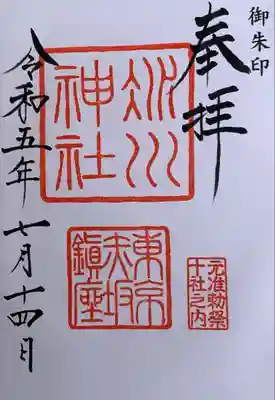 御朱印
奉拝
氷川
神社
東京
赤坂
鎮座
元准勅祭
十社之内
令和五年 七月十四日